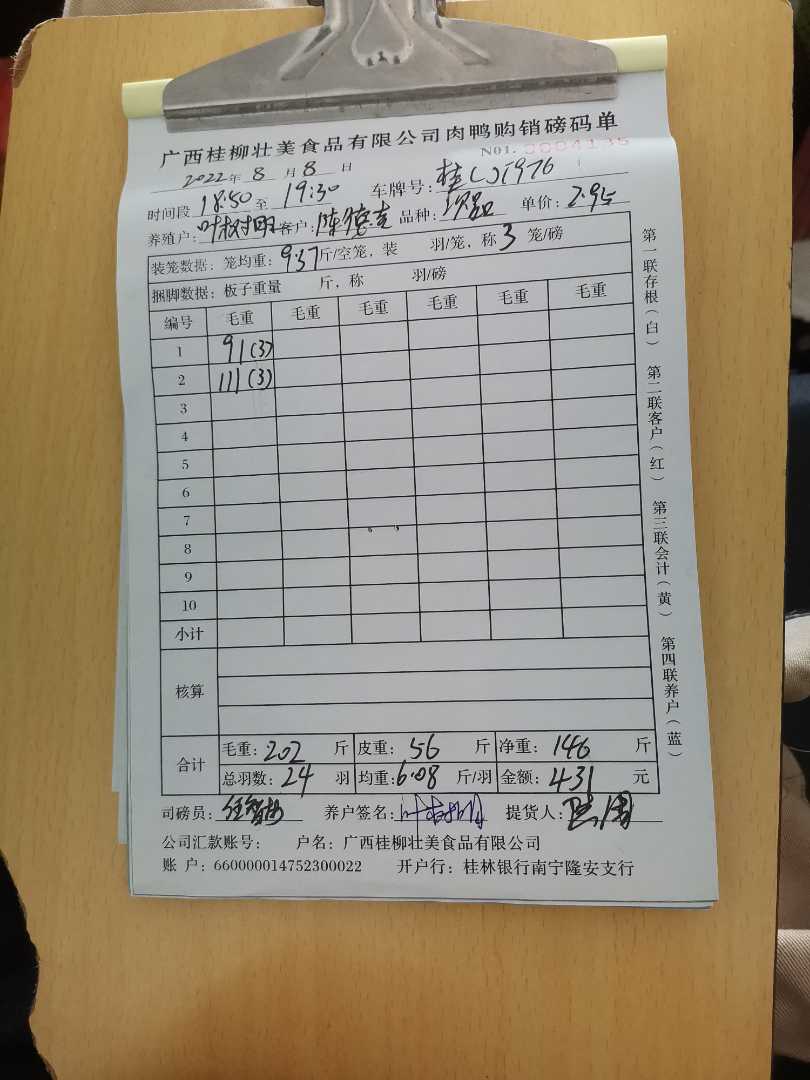 广西桂柳壮美食品有限公司肉鸭购销磅码单
N01. 0004135
2022年 8 月 8 日
时间段 18:50 至 19:30 车牌号: 桂 J1976
养殖户: 叶树明 客户: 陈德 品种: 单价: 2.95
装笼数据: 笼均重: 9.37 斤/空笼, 装 羽/笼, 称 3 笼/磅
捆脚数据: 板子重量 斤, 称 羽/磅
编号 毛重 毛重 毛重 毛重 毛重 毛重
1 91(3)
2 111(3)
3
4
5
6
7
8
9
10
小计
核算
合计 毛重: 202 斤 皮重: 56 斤 净重: 146 斤
总羽数: 24 羽 均重: 6.08 斤/羽 金额: 431 元
司磅员: 养户签名: 提货人:
公司汇款账号: 户名: 广西桂柳壮美食品有限公司
账 户: 660000014752300022 开户行: 桂林银行南宁隆安支行
第一联存根(白) 第二联客户(红) 第三联会计(黄) 第四联养户(蓝)